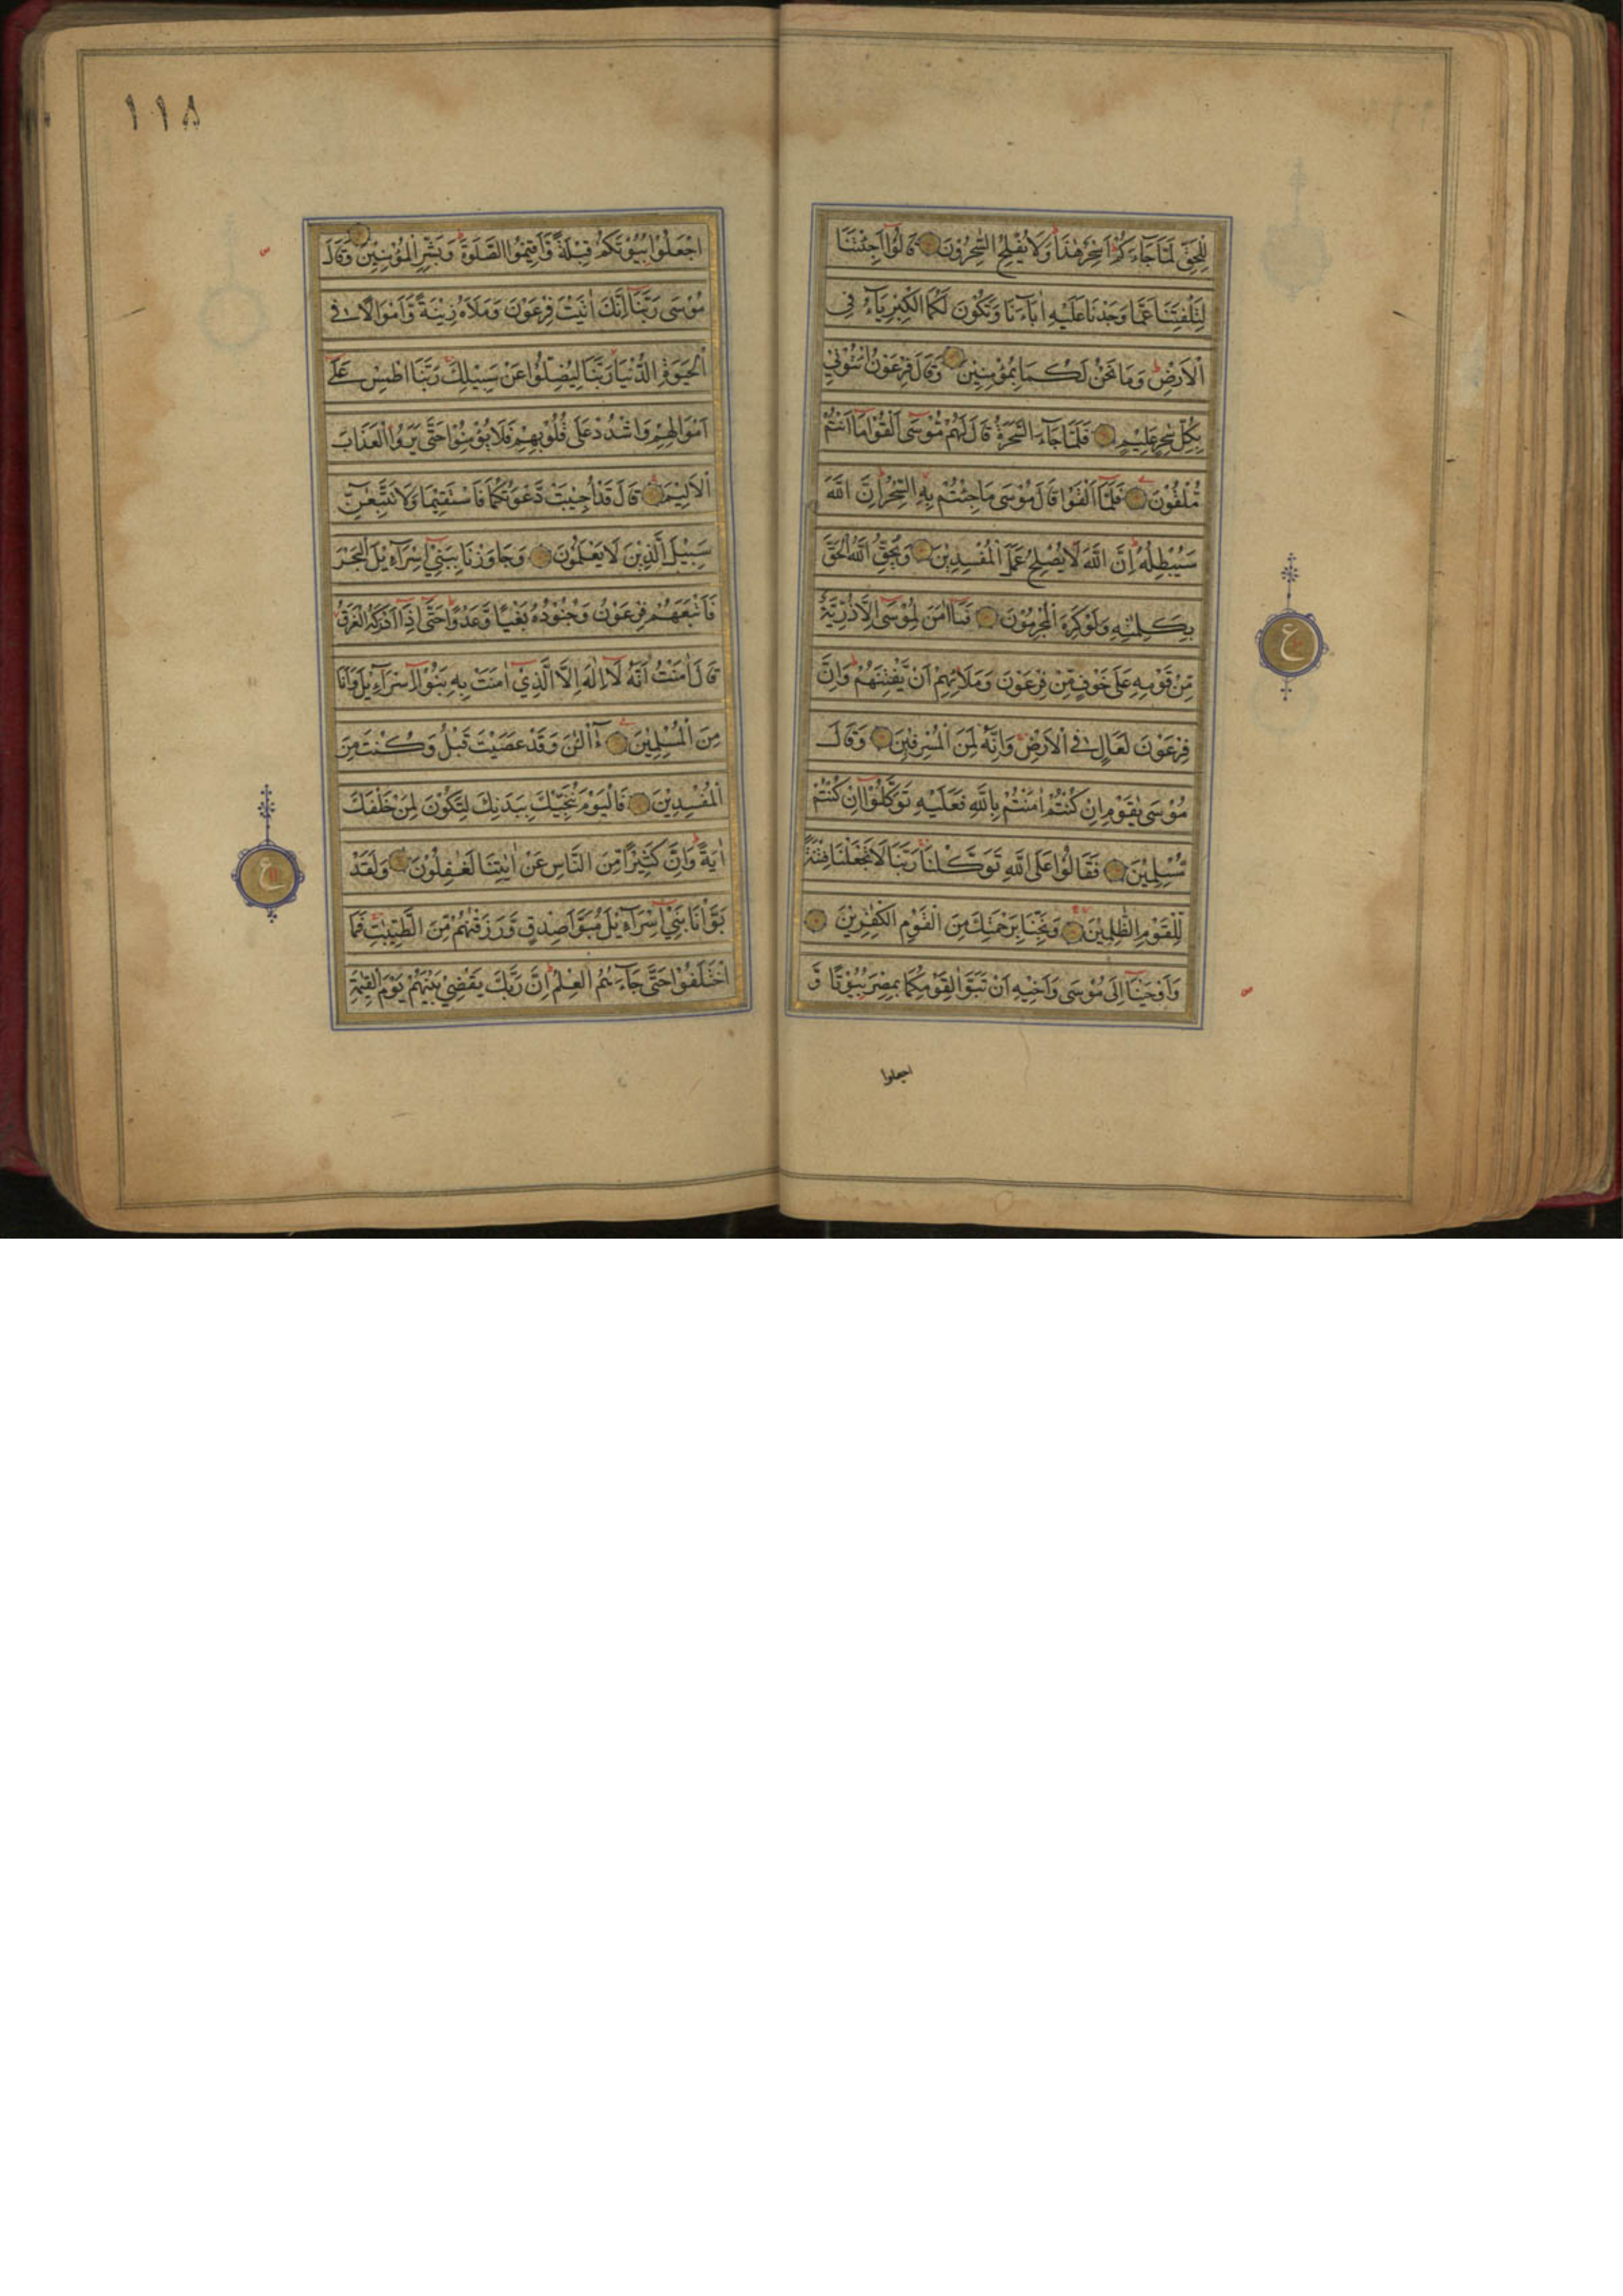 لِلْحَقِّ لَمَّا جَآءَكُمْ اَسِحْرٌ هٰذَا وَلَا يُفْلِحُ السّٰحِرُوْنَ قَالُوْٓا اَجِئْتَنَا
لِتَلْفِتَنَا عَمَّا وَجَدْنَا عَلَيْهِ اٰبَآءَنَا وَتَكُوْنَ لَكُمَا الْكِبْرِيَآءُ فِي
الْاَرْضِ وَمَا نَحْنُ لَكُمَا بِمُؤْمِنِيْنَ وَقَالَ فِرْعَوْنُ ائْتُوْنِيْ
بِكُلِّ سٰحِرٍ عَلِيْمٍ فَلَمَّا جَآءَ السَّحَرَةُ قَالَ لَهُمْ مُّوْسٰٓى اَلْقُوْا مَآ اَنْتُمْ
مُّلْقُوْنَ فَلَمَّآ اَلْقَوْا قَالَ مُوْسٰى مَا جِئْتُمْ بِهِ السِّحْرُ اِنَّ اللّٰهَ
سَيُبْطِلُهٗ اِنَّ اللّٰهَ لَا يُصْلِحُ عَمَلَ الْمُفْسِدِيْنَ وَيُحِقُّ اللّٰهُ الْحَقَّ
بِكَلِمٰتِهٖ وَلَوْ كَرِهَ الْمُجْرِمُوْنَ فَمَآ اٰمَنَ لِمُوْسٰٓى اِلَّا ذُرِّيَّةٌ
مِّنْ قَوْمِهٖ عَلٰى خَوْفٍ مِّنْ فِرْعَوْنَ وَمَلَا۟ئِهِمْ اَنْ يَّفْتِنَهُمْ وَاِنَّ
فِرْعَوْنَ لَعَالٍ فِي الْاَرْضِ وَاِنَّهٗ لَمِنَ الْمُسْرِفِيْنَ وَقَالَ
مُوْسٰى يٰقَوْمِ اِنْ كُنْتُمْ اٰمَنْتُمْ بِاللّٰهِ فَعَلَيْهِ تَوَكَّلُوْٓا اِنْ كُنْتُمْ
مُّسْلِمِيْنَ فَقَالُوْا عَلَى اللّٰهِ تَوَكَّلْنَا رَبَّنَا لَا تَجْعَلْنَا فِتْنَةً
لِّلْقَوْمِ الظّٰلِمِيْنَ وَنَجِّنَا بِرَحْمَتِكَ مِنَ الْقَوْمِ الْكٰفِرِيْنَ
وَاَوْحَيْنَآ اِلٰى مُوْسٰى وَاَخِيْهِ اَنْ تَبَوَّاٰ لِقَوْمِكُمَا بِمِصْرَ بُيُوْتًا وَّ
اجعلوا
ع
١١٨
اجْعَلُوْا بُيُوْتَكُمْ قِبْلَةً وَّاَقِيْمُوا الصَّلٰوةَ وَبَشِّرِ الْمُؤْمِنِيْنَ وَقَالَ
مُوْسٰى رَبَّنَآ اِنَّكَ اٰتَيْتَ فِرْعَوْنَ وَمَلَاَهٗ زِيْنَةً وَّاَمْوَالًا فِي
الْحَيٰوةِ الدُّنْيَا رَبَّنَا لِيُضِلُّوْا عَنْ سَبِيْلِكَ رَبَّنَا اطْمِسْ عَلٰٓى
اَمْوَالِهِمْ وَاشْدُدْ عَلٰى قُلُوْبِهِمْ فَلَا يُؤْمِنُوْا حَتّٰى يَرَوُا الْعَذَابَ
الْاَلِيْمَ قَالَ قَدْ اُجِيْبَتْ دَّعْوَتُكُمَا فَاسْتَقِيْمَا وَلَا تَتَّبِعٰٓنِّ
سَبِيْلَ الَّذِيْنَ لَا يَعْلَمُوْنَ وَجَاوَزْنَا بِبَنِيْٓ اِسْرَآءِيْلَ الْبَحْرَ
فَاَتْبَعَهُمْ فِرْعَوْنُ وَجُنُوْدُهٗ بَغْيًا وَّعَدْوًا حَتّٰٓى اِذَآ اَدْرَكَهُ الْغَرَقُ
قَالَ اٰمَنْتُ اَنَّهٗ لَآ اِلٰهَ اِلَّا الَّذِيْٓ اٰمَنَتْ بِهٖ بَنُوْٓا اِسْرَآءِيْلَ وَاَنَا
مِنَ الْمُسْلِمِيْنَ آٰلْـٰٔنَ وَقَدْ عَصَيْتَ قَبْلُ وَكُنْتَ مِنَ
الْمُفْسِدِيْنَ فَالْيَوْمَ نُنَجِّيْكَ بِبَدَنِكَ لِتَكُوْنَ لِمَنْ خَلْفَكَ
اٰيَةً وَاِنَّ كَثِيْرًا مِّنَ النَّاسِ عَنْ اٰيٰتِنَا لَغٰفِلُوْنَ وَلَقَدْ
بَوَّاْنَا بَنِيْٓ اِسْرَآءِيْلَ مُبَوَّاَ صِدْقٍ وَّرَزَقْنٰهُمْ مِّنَ الطَّيِّبٰتِ فَمَا
اخْتَلَفُوْا حَتّٰى جَآءَهُمُ الْعِلْمُ اِنَّ رَبَّكَ يَقْضِيْ بَيْنَهُمْ يَوْمَ الْقِيٰمَةِ
ع